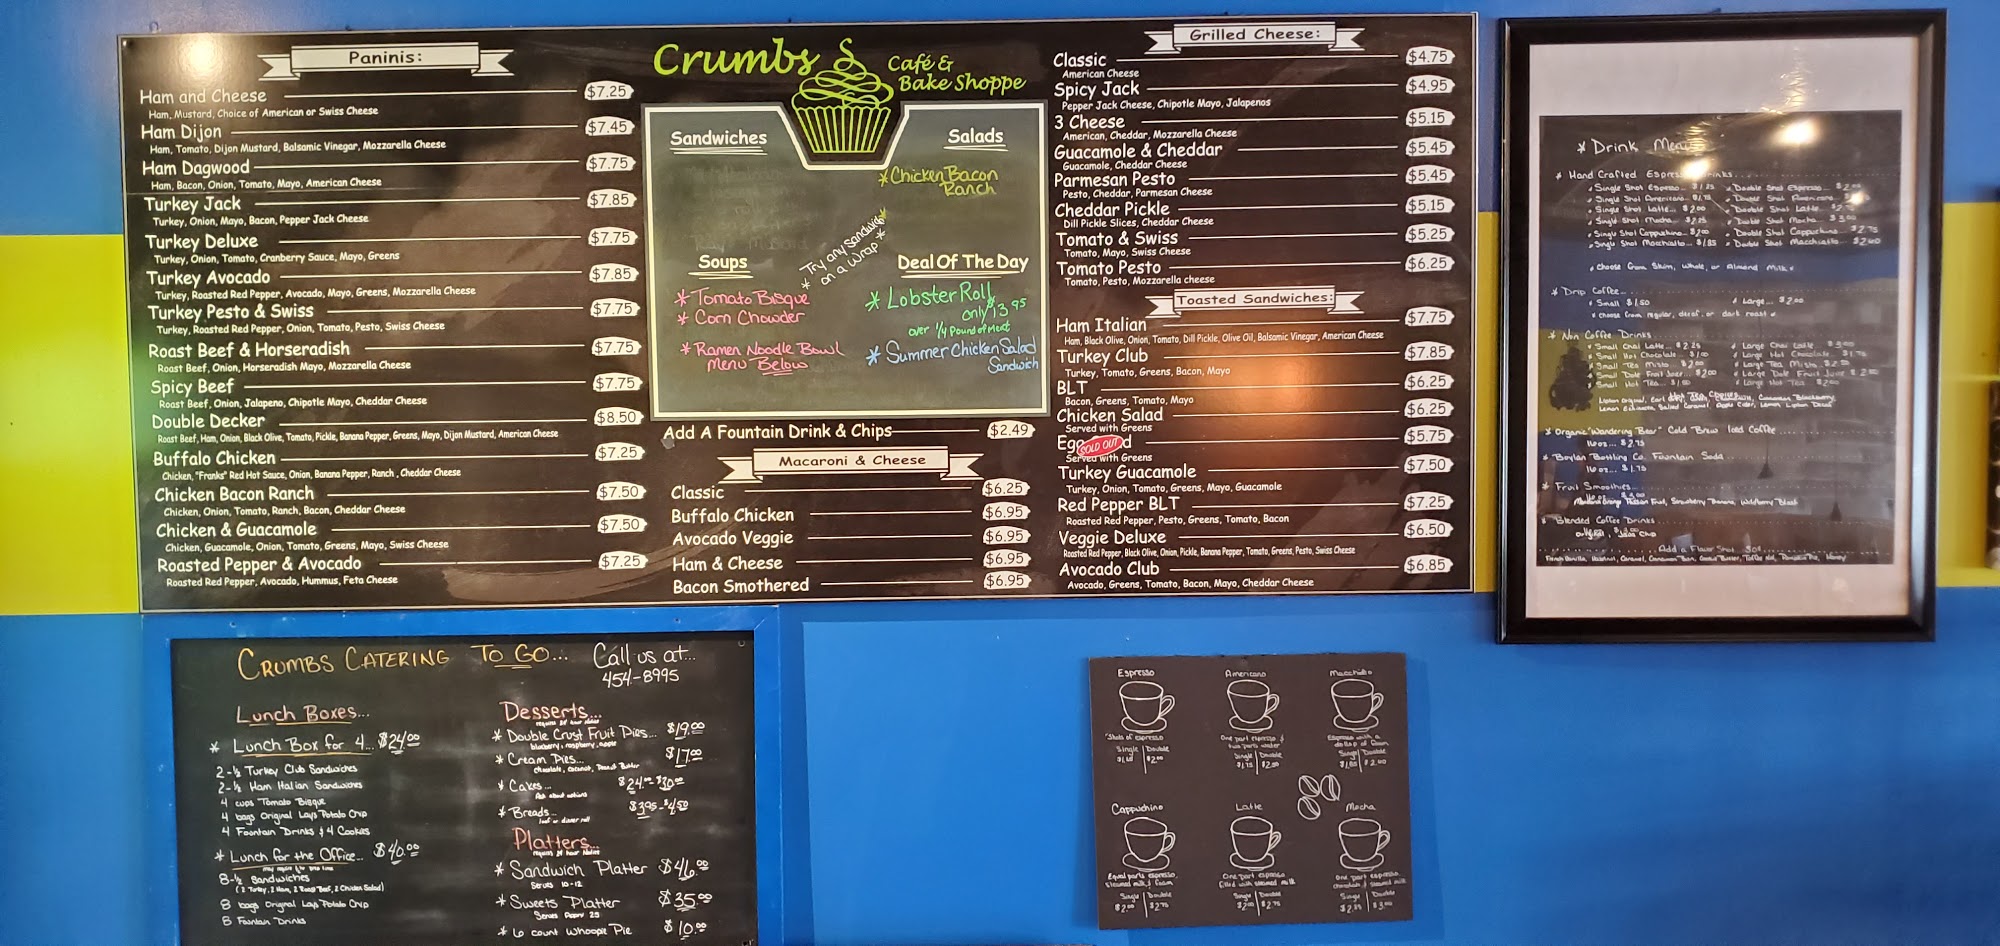 Paninis:
Ham and Cheese $7.25
Ham, Mustard, Choice of American or Swiss Cheese
Ham Dijon $7.45
Ham, Tomato, Dijon Mustard, Balsamic Vinegar, Mozzarella Cheese
Ham Dagwood $7.75
Ham, Bacon, Onion, Tomato, Mayo, American Cheese
Turkey Jack $7.85
Turkey, Onion, Mayo, Bacon, Pepper Jack Cheese
Turkey Deluxe $7.75
Turkey, Onion, Tomato, Cranberry Sauce, Mayo, Greens
Turkey Avocado $7.85
Turkey, Roasted Red Pepper, Avocado, Mayo, Greens, Mozzarella Cheese
Turkey Pesto & Swiss $7.75
Turkey, Roasted Red Pepper, Onion, Tomato, Pesto, Swiss Cheese
Roast Beef & Horseradish $7.75
Roast Beef, Onion, Horseradish Mayo, Mozzarella Cheese
Spicy Beef $7.75
Roast Beef, Onion, Jalapeno, Chipotle Mayo, Cheddar Cheese
Double Decker $8.50
Roast Beef, Ham, Onion, Black Olive, Tomato, Pickle, Banana Pepper, Greens, Mayo, Dijon Mustard, American Cheese
Buffalo Chicken $7.25
Chicken, "Franks" Red Hot Sauce, Onion, Banana Pepper, Ranch, Cheddar Cheese
Chicken Bacon Ranch $7.50
Chicken, Onion, Tomato, Ranch, Bacon, Cheddar Cheese
Chicken & Guacamole $7.50
Chicken, Guacamole, Onion, Tomato, Greens, Mayo, Swiss Cheese
Roasted Pepper & Avocado $7.25
Roasted Red Pepper, Avocado, Hummus, Feta Cheese
Crumbs
Café &
Bake Shoppe
Sandwiches
Salads
*Chicken Bacon
Ranch
* Try any sandwich
on a wrap *
Soups
* Tomato Bisque
* Corn Chowder
* Ramen Noodle Bowl
Menu Below
Deal Of The Day
* Lobster Roll
only $13.95
over 1/4 pound of meat
* Summer Chicken Salad
Sandwich
Add A Fountain Drink & Chips $2.49
Macaroni & Cheese
Classic $6.25
Buffalo Chicken $6.95
Avocado Veggie $6.95
Ham & Cheese $6.95
Bacon Smothered $6.95
Grilled Cheese:
Classic $4.75
American Cheese
Spicy Jack $4.95
Pepper Jack Cheese, Chipotle Mayo, Jalapenos
3 Cheese $5.15
American, Cheddar, Mozzarella Cheese
Guacamole & Cheddar $5.45
Guacamole, Cheddar Cheese
Parmesan Pesto $5.45
Pesto, Cheddar, Parmesan Cheese
Cheddar Pickle $5.15
Dill Pickle Slices, Cheddar Cheese
Tomato & Swiss $5.25
Tomato, Mayo, Swiss Cheese
Tomato Pesto $6.25
Tomato, Pesto, Mozzarella cheese
Toasted Sandwiches:
Ham Italian $7.75
Ham, Black Olive, Onion, Tomato, Dill Pickle, Olive Oil, Balsamic Vinegar, American Cheese
Turkey Club $7.85
Turkey, Tomato, Greens, Bacon, Mayo
BLT $6.25
Bacon, Greens, Tomato, Mayo
Chicken Salad $6.25
Served with Greens
Egg SOLD OUT d $5.75
Served with Greens
Turkey Guacamole $7.50
Turkey, Onion, Tomato, Greens, Mayo, Guacamole
Red Pepper BLT $7.25
Roasted Red Pepper, Pesto, Greens, Tomato, Bacon
Veggie Deluxe $6.50
Roasted Red Pepper, Black Olive, Onion, Pickle, Banana Pepper, Tomato, Greens, Pesto, Swiss Cheese
Avocado Club $6.85
Avocado, Greens, Tomato, Bacon, Mayo, Cheddar Cheese
* Drink Menu
* Hand Crafted Espresso Drinks
* Single Shot Espresso... $1.25 * Double Shot Espresso...
* Single Shot Americano * Double Shot Americano
* Single Shot Latte... $2.00 * Double Shot Latte
* Single Shot Mocha... $2.25 * Double Shot Mocha... $3.00
* Single Shot Cappuchino... $2.00 * Double Shot Cappuchino... $2.75
* Single Shot Macchiatto... $1.85 * Double Shot Macchiatto... $2.60
* choose from Skim, Whole, or Almond Milk *
* Drip Coffee...
* Small $1.50 * Large... $2.00
* choose from regular, decaf, or dark roast *
* Non Coffee Drinks
* Small Chai Latte... $2.25 * Large Chai Latte... $3.00
* Small Hot Chocolate... $1.00 * Large Hot Chocolate... $1.75
* Small Tea Misto * Large Tea Misto
* Small Dole Fruit Juice... $2.00 * Large Dole Fruit Juice
* Small Hot Tea... $1.50 * Large Hot Tea $2.00
* Organic "Wandering Bear" Cold Brew Iced Coffee...
16 oz... $2.75
* Boylan Bottling Co. Fountain Soda
16 oz... $1.75
* Fruit Smoothies...
Passion Fruit, Strawberry Banana, Wildberry Blast
* Blended Coffee Drinks
Add a Flavor Shot 30¢
French Vanilla, Hazelnut, Caramel, Cinnamon Bun, Toffee Nut, Pumpkin Pie, Honey
Crumbs Catering To Go... Call us at...
454-8995
Lunch Boxes...
* Lunch Box for 4... $24.00
2-½ Turkey Club Sandwiches
2-½ Ham Italian Sandwiches
4 cups Tomato Bisque
4 bags Original Lays Potato Chip
4 Fountain Drinks & 4 Cookies
* Lunch for the Office... $40.00
8-½ Sandwiches
(2 Turkey, 2 Ham, 2 Roast Beef, 2 Chicken Salad)
8 bags Original Lays Potato Chip
8 Fountain Drinks
Desserts...
requires 24 hour notice
* Double Crust Fruit Pies... $19.00
blueberry, raspberry, apple
* Cream Pies... $17.00
chocolate, coconut, Peanut Butter
* Cakes... $24.00-$30.00
Ask about options
* Breads... $3.95-$4.50
loaf or dinner roll
Platters...
requires 24 hour notice
* Sandwich Platter $46.00
Serves 10-12
* Sweets Platter $35.00
Serves Approx 25
* 6 count Whoopie Pie $10.00
Espresso Americano Macchiatto
Shots of espresso
One part espresso &
two parts water
Espresso with a
dollop of foam
Single Double
$2.00
Single Double
$1.75 $2.00
Single Double
$1.85 $2.60
Cappuchino Latte Mocha
Equal parts espresso,
steamed milk, & foam
One part espresso
filled with steamed milk
One part espresso
chocolate & steamed milk
Single Double
$2.00 $2.75
Single Double
$2.00 $2.75
Single Double
$2.25 $3.00